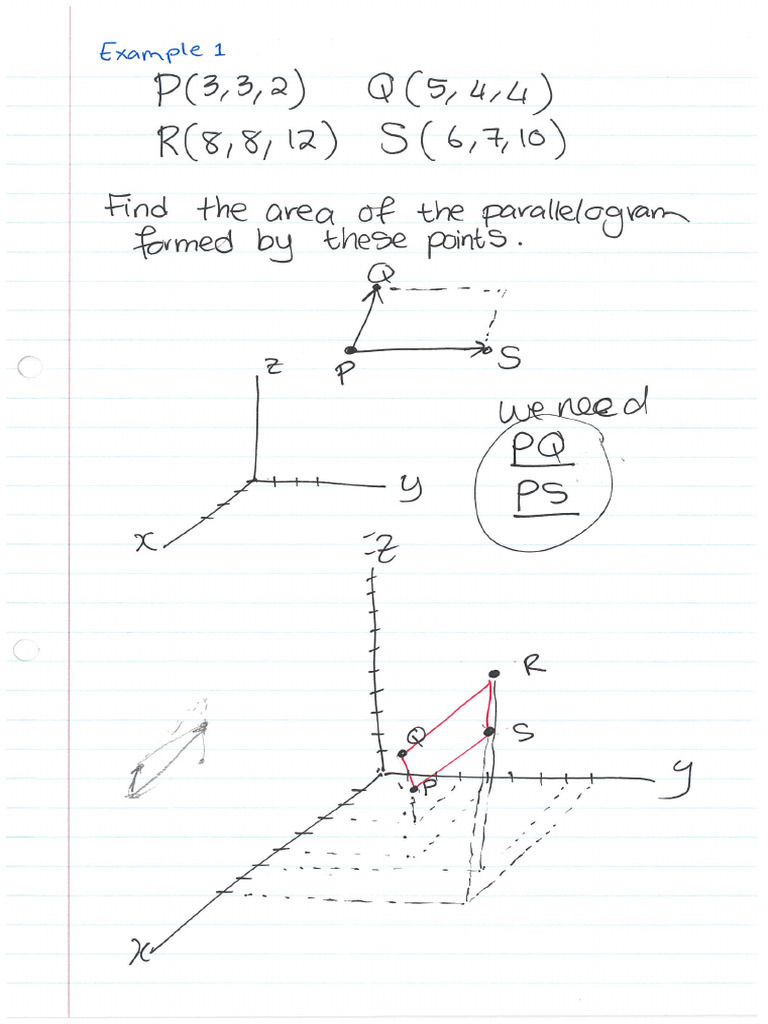 Example 1
P(3,3,2) Q(5,4,4)
R(8,8,12) S(6,7,10)
Find the area of the parallelogram
formed by these points.
Q
P S
z
y
x
we need
PQ
PS
z
R
Q
S
P
y
x